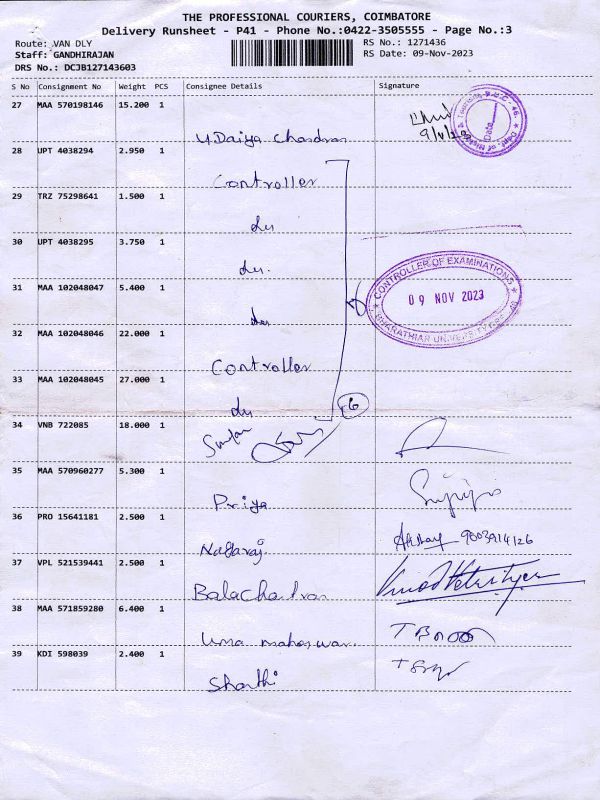 THE PROFESSIONAL COURIERS, COIMBATORE
Delivery Runsheet - P41 - Phone No.:0422-3505555 - Page No.:3
Route: VAN DLY RS No.: 1271436
Staff: GANDHIRAJAN RS Date: 09-Nov-2023
DRS No.: DCJB127143603
S No Consignment No Weight PCS Consignee Details Signature
27 MAA 570198146 15.200 1
Udaiya Chandran
28 UPT 4038294 2.950 1
Controller
29 TRZ 75298641 1.500 1
du
30 UPT 4038295 3.750 1
du.
31 MAA 102048047 5.400 1
du
CONTROLLER OF EXAMINATIONS
09 NOV 2023
BHARATHIAR UNIVERSITY
32 MAA 102048046 22.000 1
Controller
33 MAA 102048045 27.000 1
du
6
34 VNB 722085 18.000 1
35 MAA 570960277 5.300 1
Priya
36 PRO 15641181 2.500 1
Nagaraj
37 VPL 521539441 2.500 1
Balachandran
38 MAA 571859280 6.400 1
Uma maheswari
39 KDI 598039 2.400 1
Sharthi